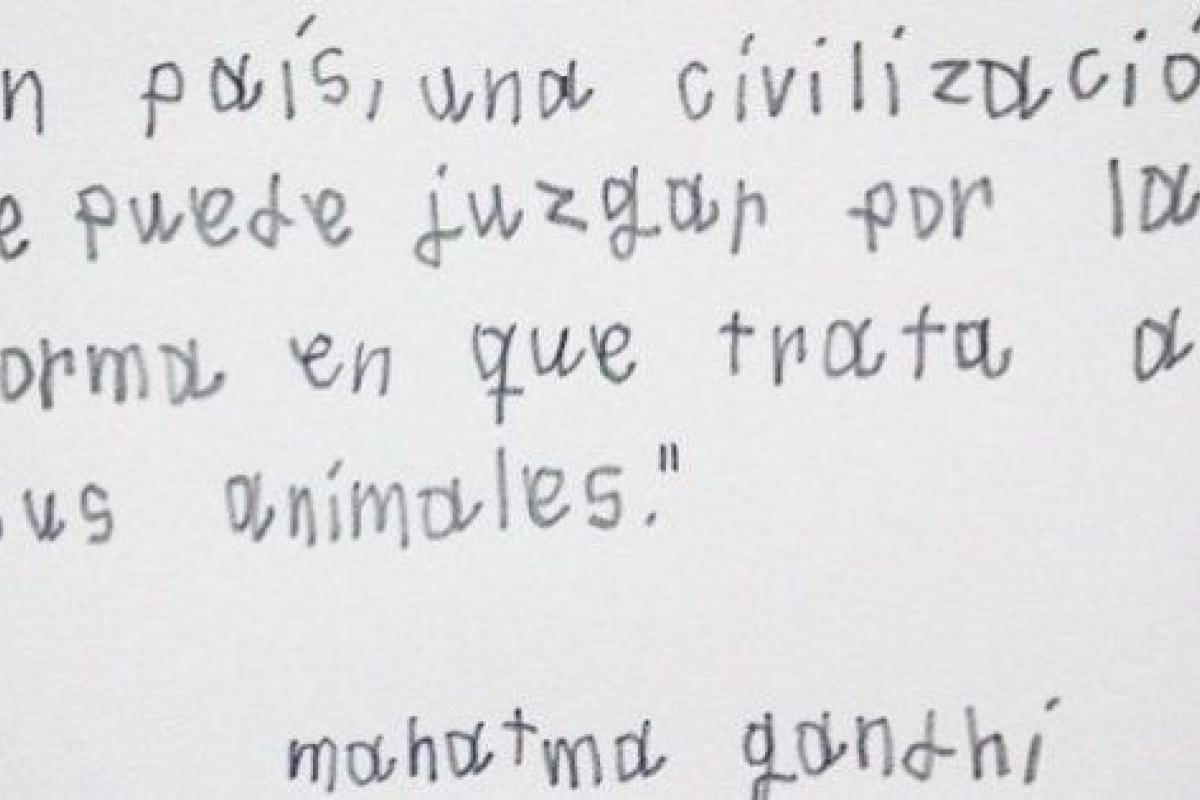 n país, una civilizació
e puede juzgar por la
orma en que trata a
us animales."
mahatma gandhi